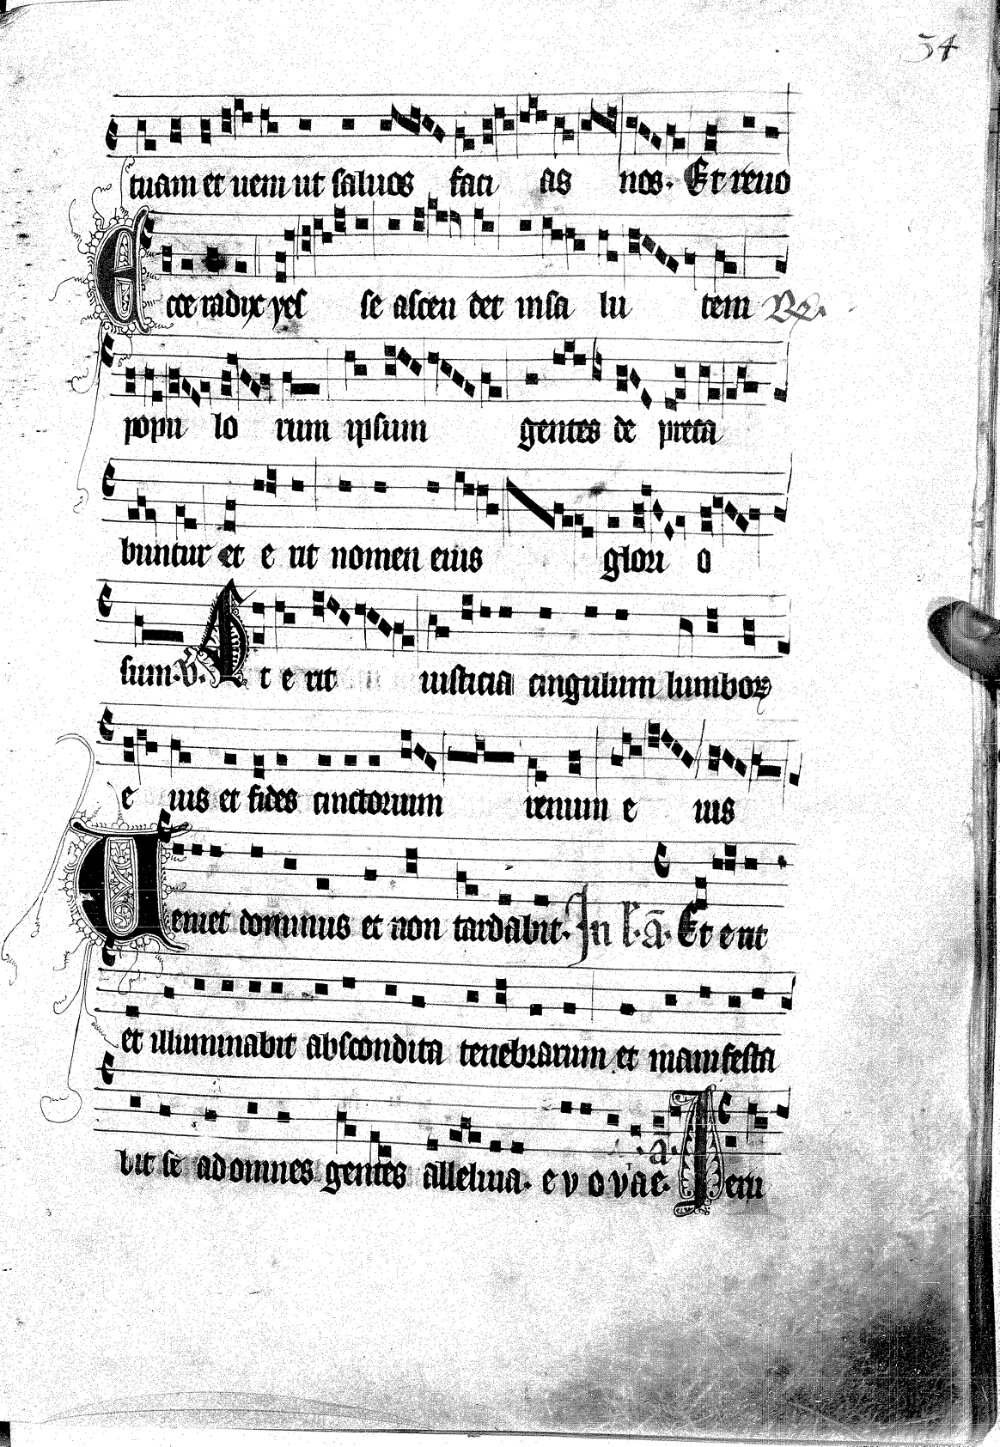 34
tuam et veni ut saluos faci as nos. Et reuo
Ecce radix yes se ascen det in sa lu tem R.
popu lo rum ipsum gentes de preca
buntur et e rit nomen eius glori o
sum. V. Et e rit iusticia cingulum lumbor
e ius et fides cinctorium renum e ius
Ueniet dominus et non tardabit. In l. a. Et erit
et illuminabit abscondita tenebrarum et manifesta
bit se ad omnes gentes alleluia. e v o v a e. a. Veni